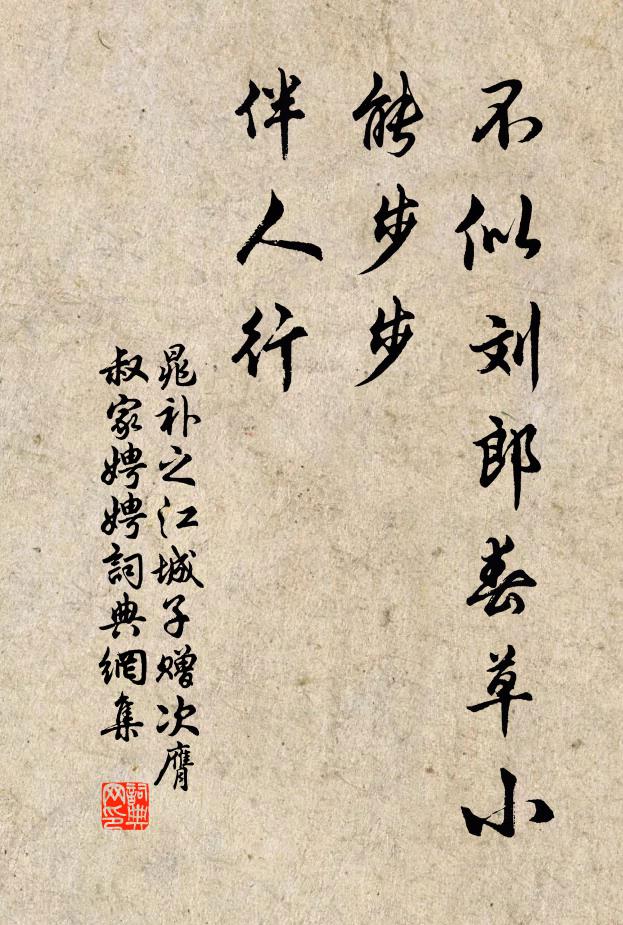 不似刘郎春草小
能步步
伴人行
晁补之江城子赠次膺
叔家娉娉詞典網集
詞典
网印